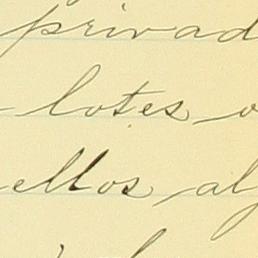 privad
lotes o
ellos al